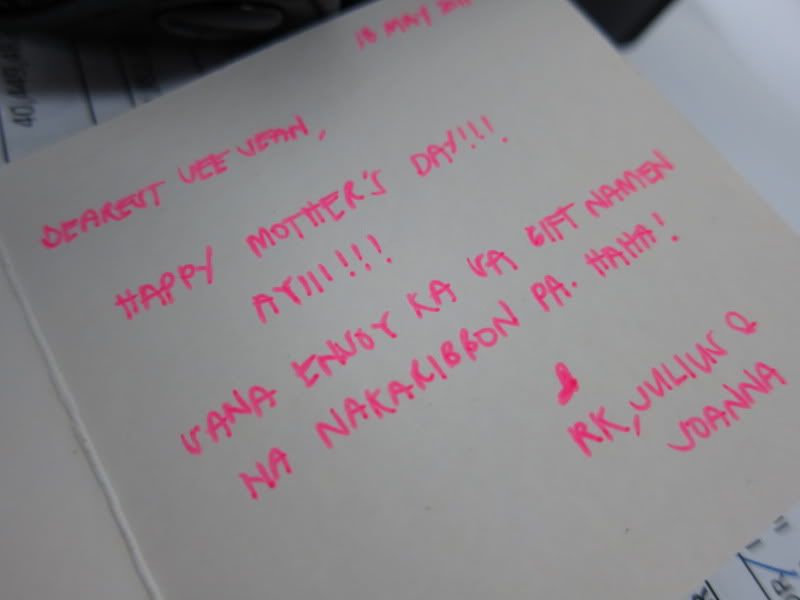 MAY
DEAREST VEE JEAN,
HAPPY MOTHER'S DAY!!!.
AYIII!!!
SANA ENJOY KA SA GIFT NAMEN
NA NAKARIBBON PA. HAHA!
RK, JULIUS &
JOANNA